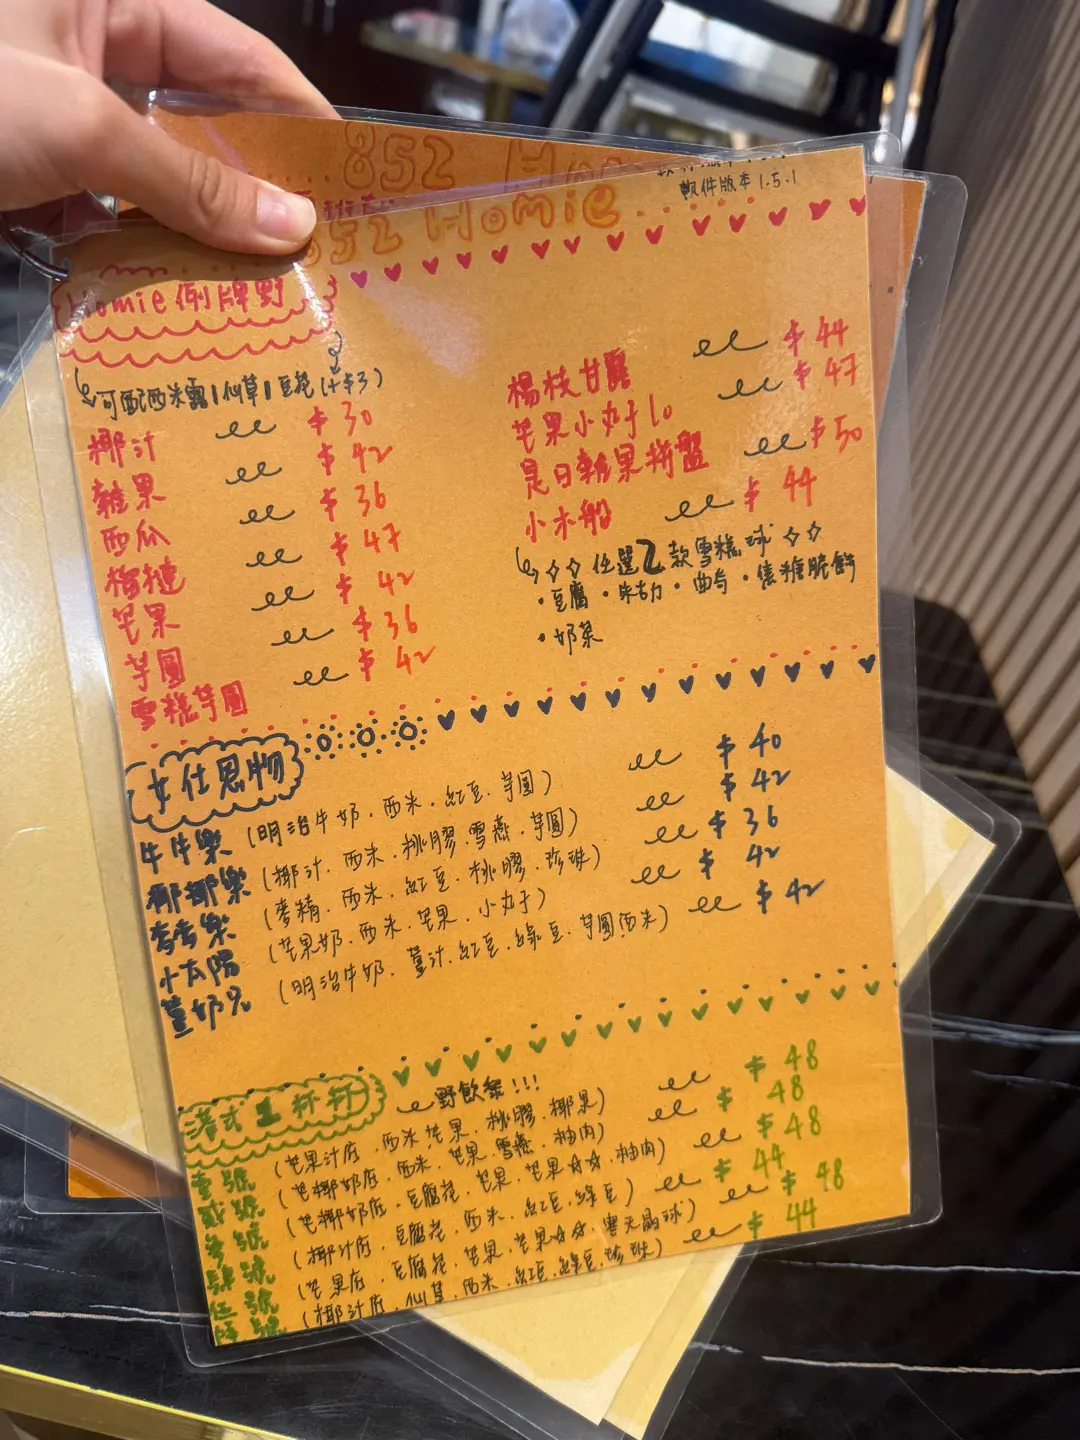 852 Ho
軟件版本1.5.1
852 Homie
Homie例牌野
可配西米露/仙草/豆花(+$3)
椰汁 $30
雜果 $42
西瓜 $36
榴槤 $47
芒果 $42
芋圓 $36
雪糕芋圓 $42
楊枝甘露 $44
芒果小丸子10 $47
是日雜果拼盤 $50
小木船 $44
任選2款雪糕球
·豆腐·朱古力·曲奇·焦糖脆餅
·奶茶
女仕恩物
牛牛樂 (明治牛奶.西米.紅豆.芋圓) $40
椰椰樂 (椰汁.西米.桃膠.雪燕.芋圓) $42
麥麥樂 (麥精.西米.紅豆.桃膠.珍珠) $36
小太陽 (芒果奶.西米.芒果.小丸子) $42
薑奶兒 (明治牛奶.薑汁.紅豆.綠豆.芋圓.西米) $42
港式工杯杯 野飲黎!!!
壹號 (芒果汁底.西米.芒果.桃膠.椰果) $48
貳號 (芒椰奶底.西米.芒果.雪燕.柚肉) $48
叁號 (芒椰奶底.豆腐花.芒果.芒果☆☆.柚肉) $48
肆號 (椰汁底.豆腐花.西米.紅豆.綠豆) $44
伍號 (芒果底.豆腐花.芒果.芒果☆☆.寒天晶球) $48
陸號 (椰汁底.仙草.西米.紅豆.綠豆.珍珠) $44